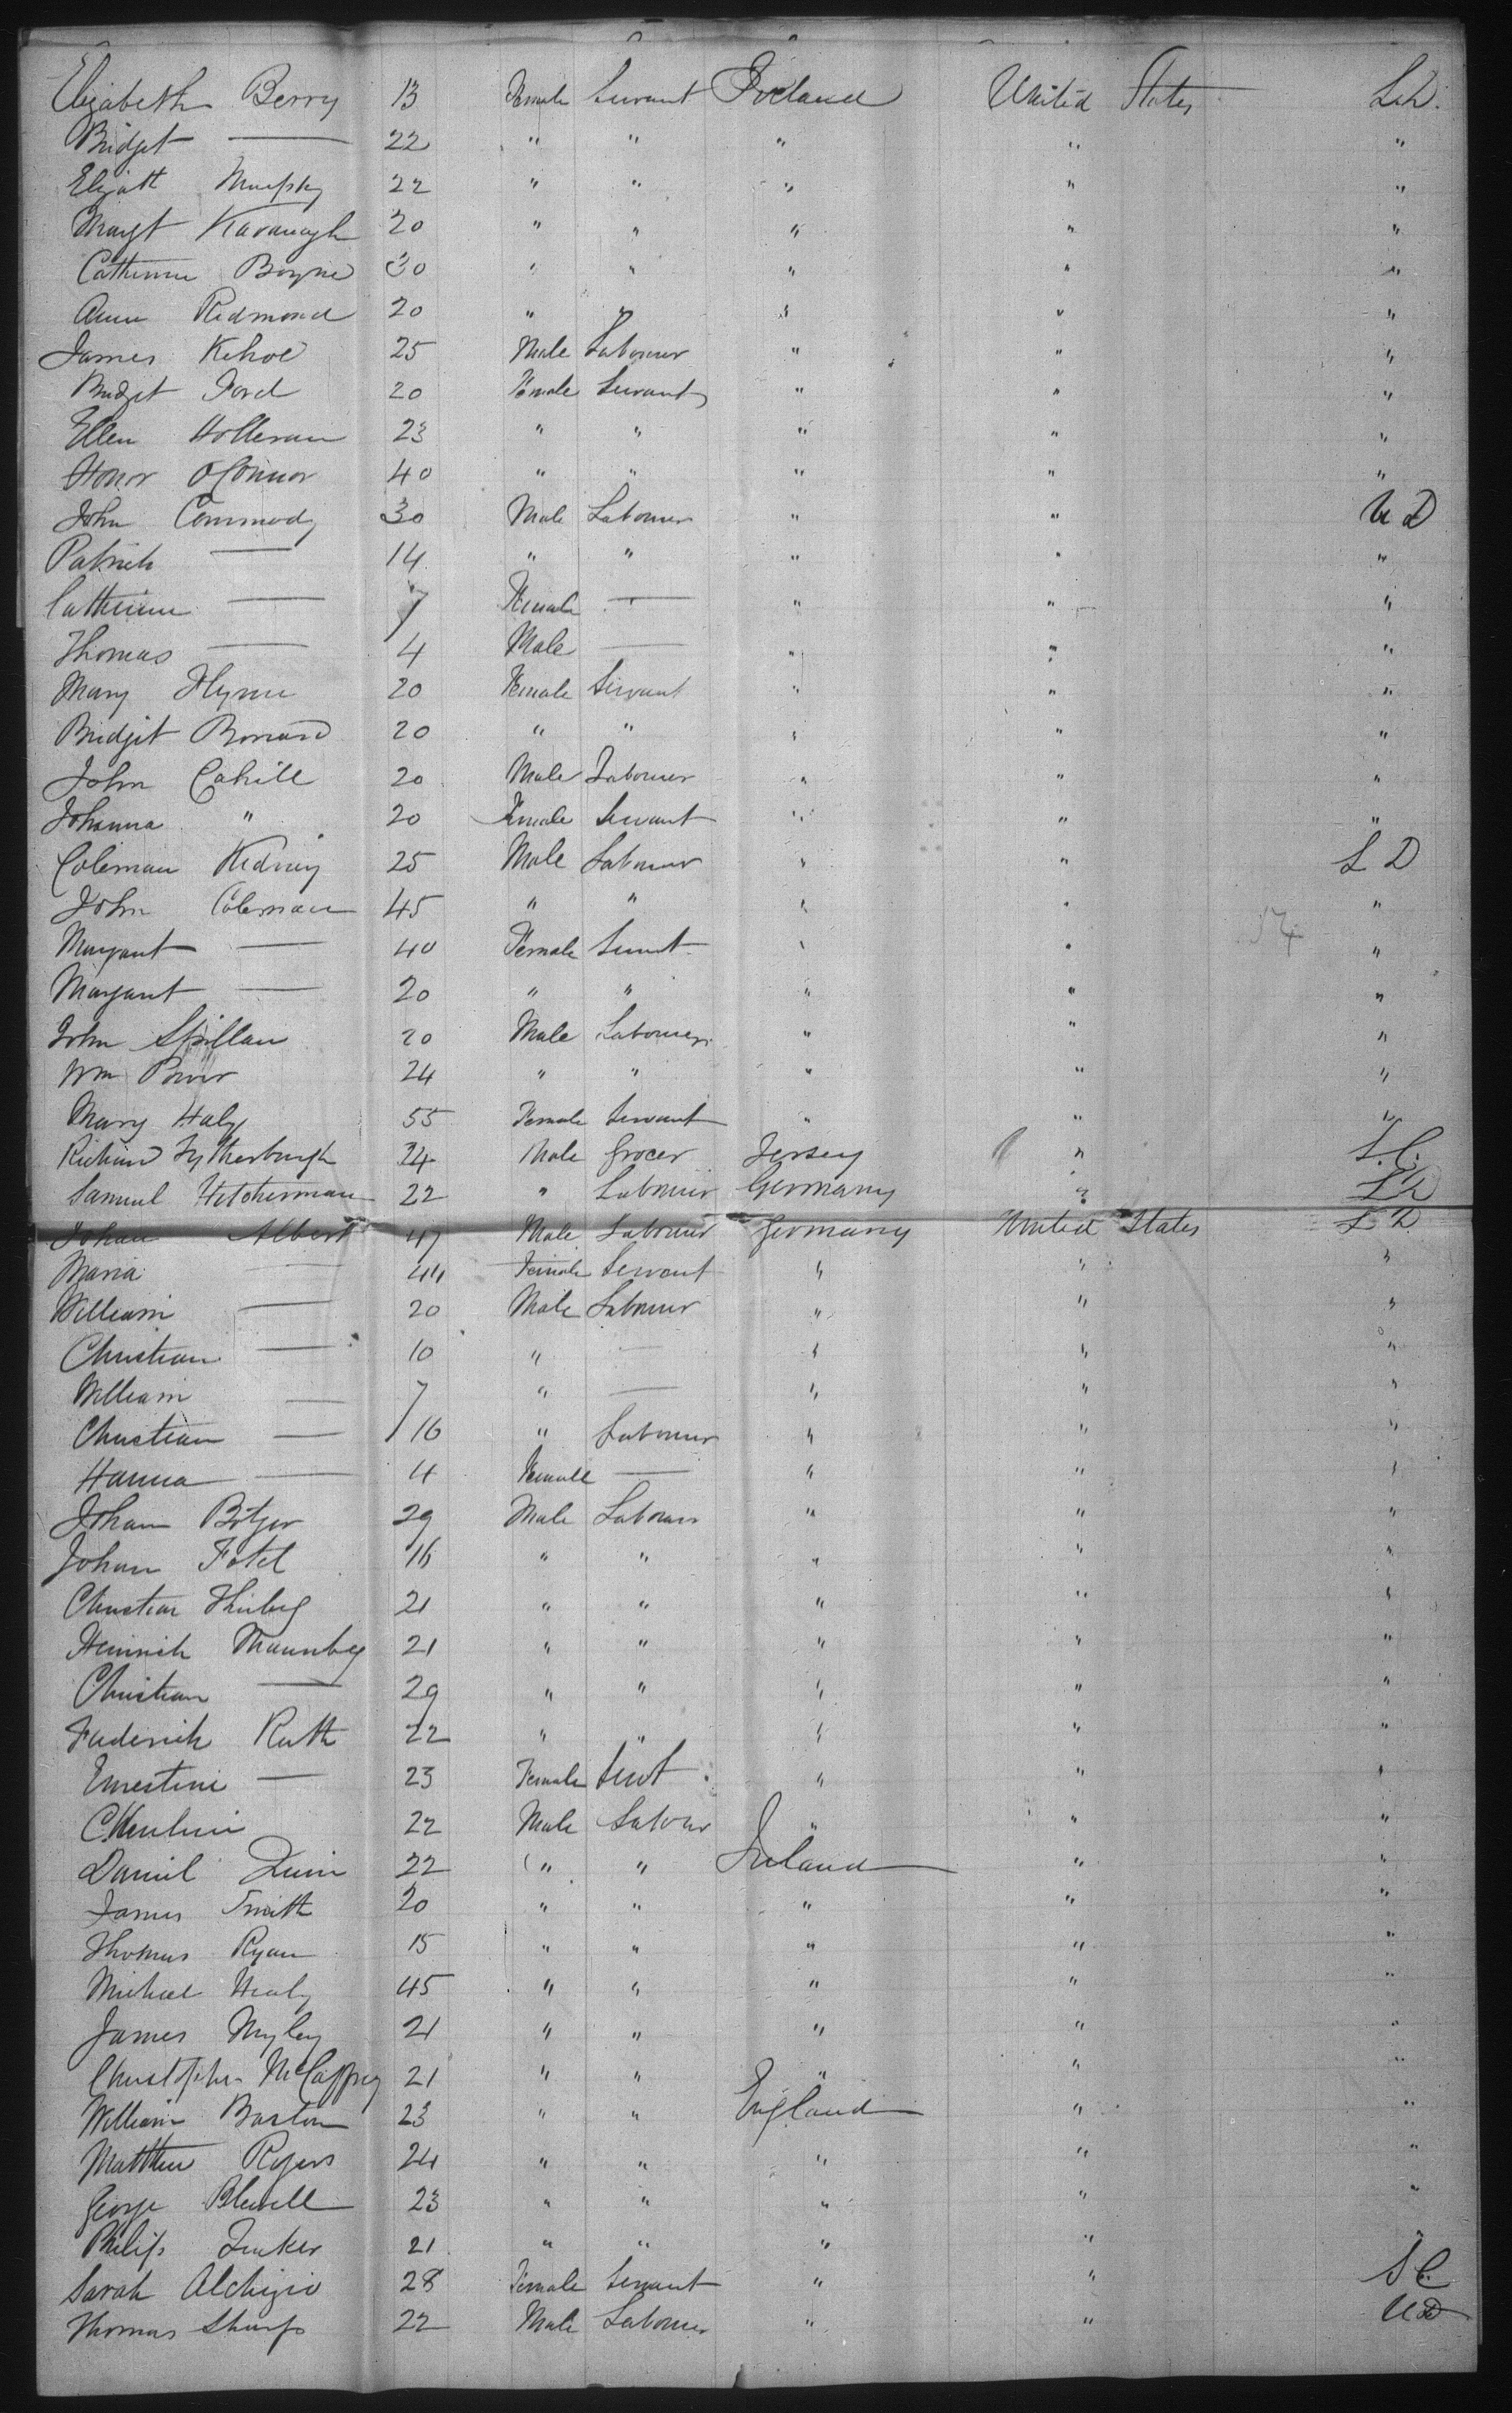 Elizabeth Berry 13 Female Servant Ireland United States L.D.
Bridget — 22 " " " " "
Elizath Murphy 22 " " " " "
Margt Kavanagh 20 " " " " "
Catherine Boyne 30 " " " " "
Ann Redmond 20 " " " " "
James Kehoe 25 Male Labourer " " "
Bridget Ford 20 Female Servant " " "
Ellen Holleran 23 " " " " "
Honor O'Connor 40 " " " " "
John Commody 30 Male Labourer " " U D
Patrick — 14 " " " " "
Catherine — 7 Female — " " "
Thomas — 4 Male — " " "
Mary Flynn 20 Female Servant " " "
Bridget 20 " " " " "
John Cahill 20 Male Labourer " " "
Johanna " 20 Female Servant " " "
Coleman Kidney 25 Male Labourer " " L D
John Coleman 45 " " " " "
Margaret — 40 Female Servt " " "
Margaret — 20 " " " " "
John Spillan 20 Male Labourer " " "
Wm Power 24 " " " " "
Mary Haly 55 Female Servant " " "
Richard 24 Male Grocer Jersey " S.C.
Samuel Hetcherman 22 " Labourer Germany " L D
Johan Albert 47 Male Labourer Germany United States L D
Maria — 44 Female Servant " " "
William — 20 Male Labourer " " "
Christian — 10 " — " " "
William — 7 " — " " "
Christian — 16 " Labourer " " "
Hanna — 4 Female — " " "
Johan Botger 29 Male Labourer " " "
Johan Fotel 16 " " " " "
Christian 21 " " " " "
Heinrich Maunberg 21 " " " " "
Christian — 29 " " " " "
Frederick Ruth 22 " " " " "
Ernestine — 23 Female Servt " " "
22 Male Labour " " "
Daniel Quin 22 " " Ireland " "
James Smith 20 " " " " "
Thomas Ryan 15 " " " " "
Michael Healy 45 " " " " "
James Myley 21 " " " " "
Christopher McCaffrey 21 " " " " "
William Barton 23 " " England " "
Matthew Rogers 24 " " " " "
George Blewell 23 " " " " "
Philip Tucker 21 " " " " "
Sarah 28 Female Servant " " S C
Thomas Sharp 22 Male Labourer " " U D